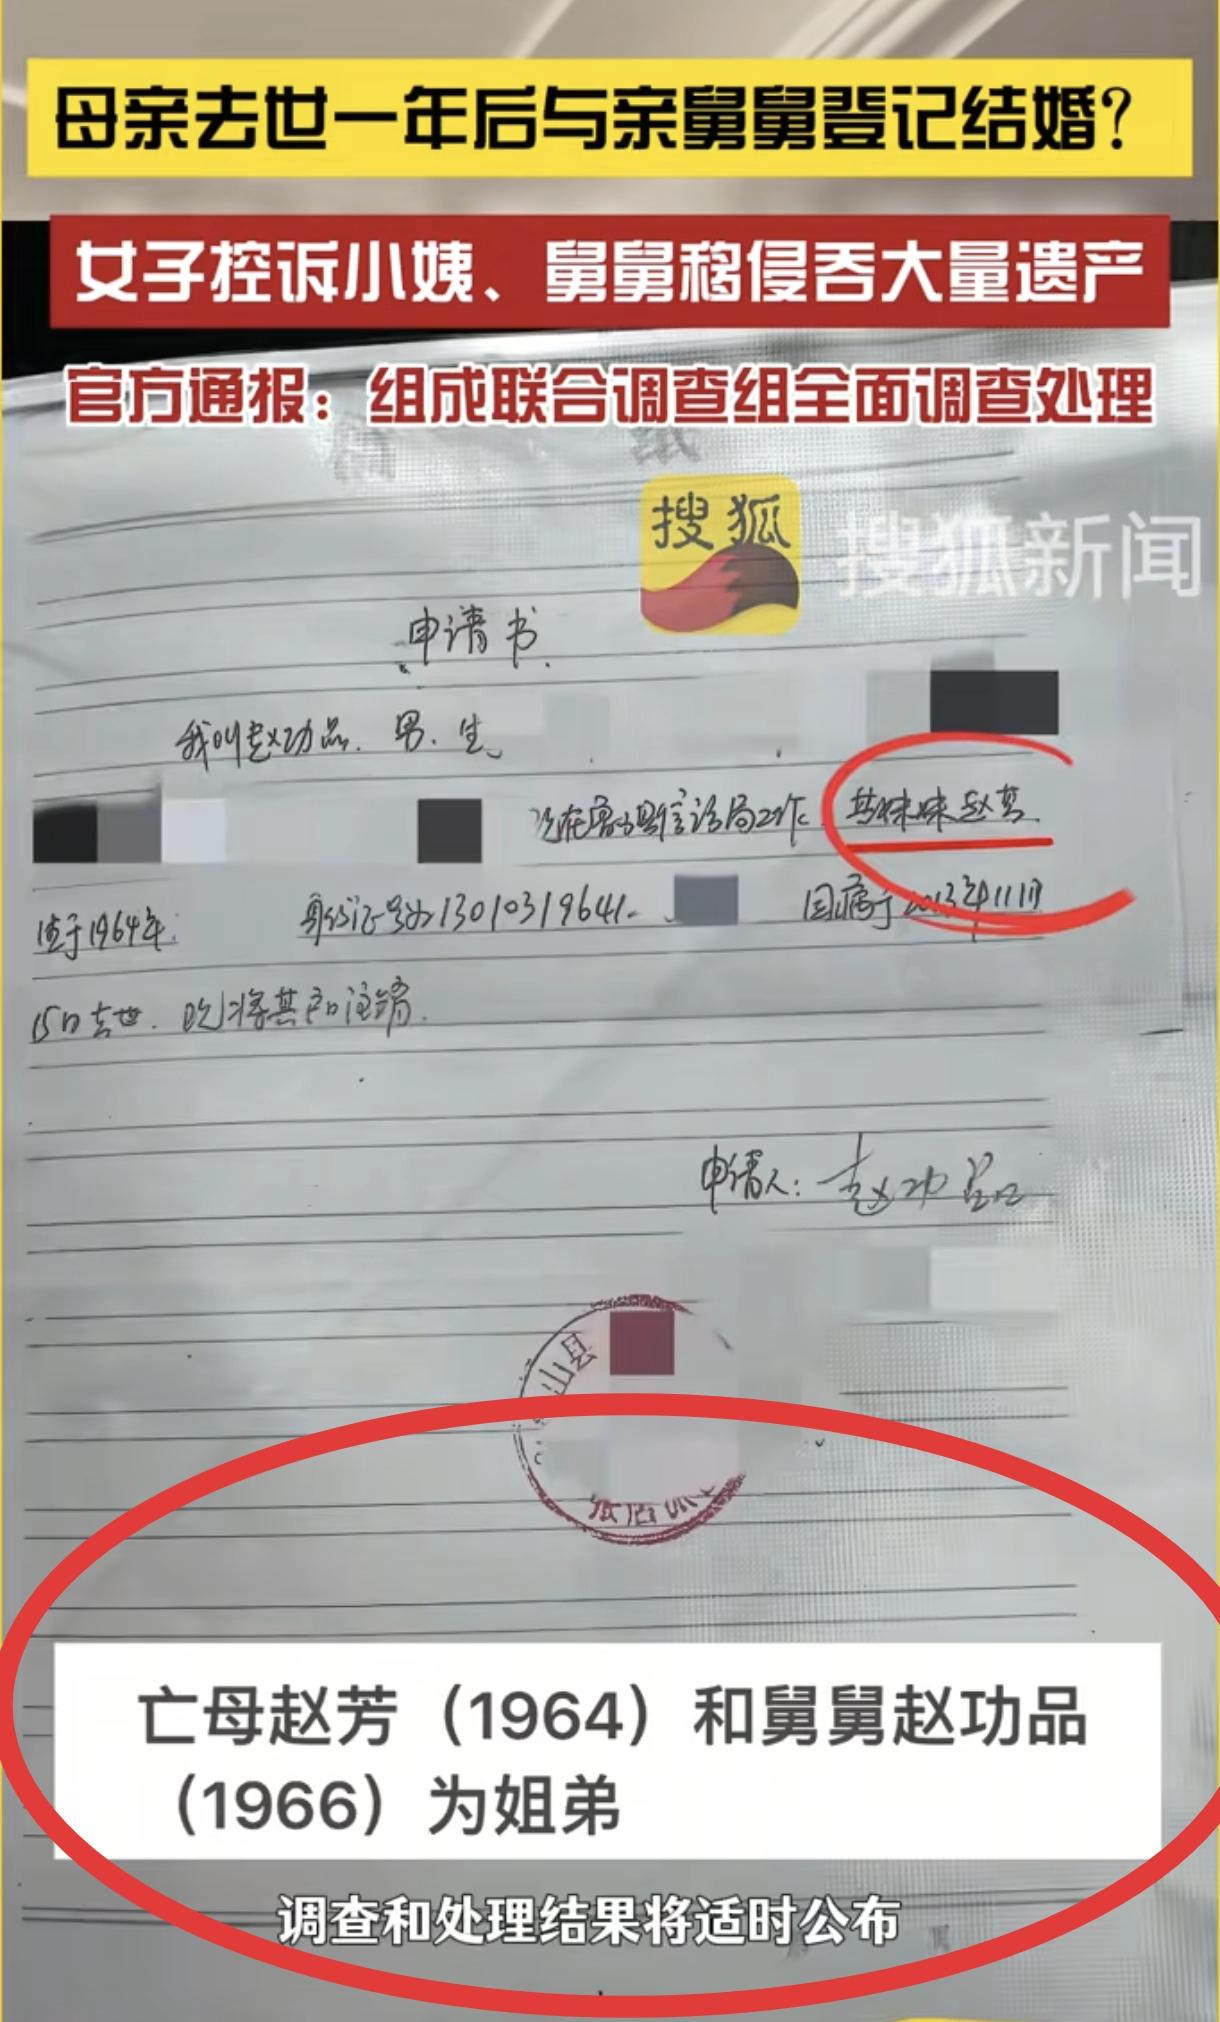 母亲去世一年后与亲舅舅登记结婚?
女子控诉小姨、舅舅移侵吞大量遗产
官方通报：组成联合调查组全面调查处理
纸
搜狐 搜狐新闻
申请书
我叫赵功品、男、生
现在 县信访局工作 其妹妹赵芳
生于1964年 身份证号为13010319641 因病于2013年11月
15日去世. 将其户口注销.
申请人: 赵功品
山县
亡母赵芳（1964）和舅舅赵功品
（1966）为姐弟
调查和处理结果将适时公布